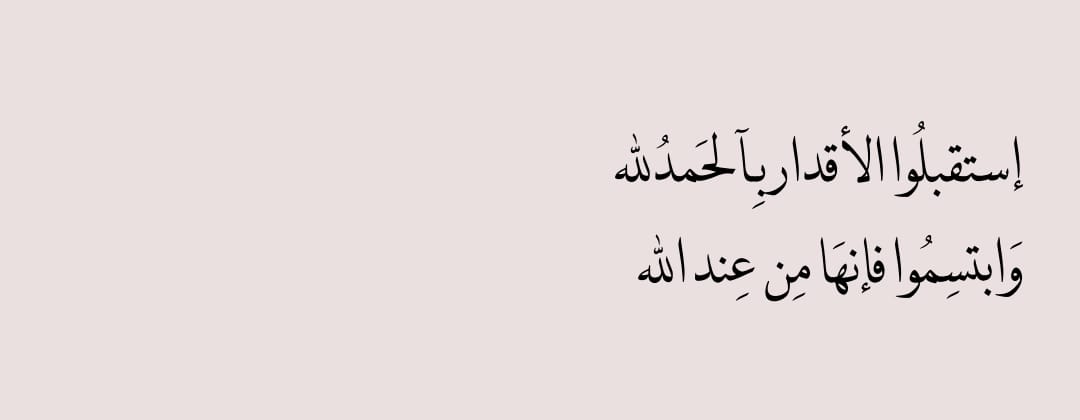 إستقبلُوا الأقدار بِآلحَمدُلله
وَابتسِمُوا فإنهَا مِن عِند الله